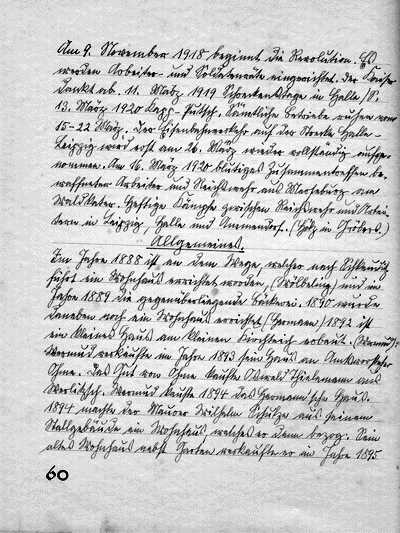 Am 9. November 1918 beginnt die Revolution. Es
werden Arbeiter- und Soldatenräte eingerichtet. Der Kaiser
dankt ab. 11. März 1919 Schreckenstage in Halle/S.
13. März 1920 Kapp-Putsch. Sämtliche Betriebe ruhen vom
15-22 März. Der Eisenbahnverkehr auf der Strecke Halle-
Leipzig wird erst am 26. März wieder vollständig aufge-
nommen. Am 16. März 1920 blutiges Zusammentreffen be-
waffneter Arbeiter und Reichswehr aus Merseburg am
Waldkater. Heftige Kämpfe zwischen Reichswehr und Arbei-
tern in Leipzig, Halle und Ammendorf. (Hölz in Gröbers.)
Allgemeines.
Im Jahre 1888 ist an dem Wege, welcher nach Schkeuditz
führt ein Wohnhaus errichtet worden, und im
Jahre 1889 die gegenüberliegende Bäckerei. 1890 wurde
daneben noch ein Wohnhaus errichtet (Hermann) 1892 ist
ein kleines Haus am kleinen Kirchteich erbaut.
Wermud verkaufte im Jahre 1893 sein Haus an
Ohme. Das Gut von Ohme kaufte Oswald Thielemann aus
Werlitzsch. Wermud kaufte 1894 das Hermann'sche Haus.
1894 machte der Maurer Wilhelm Schulze aus seinem
Stallgebäude ein Wohnhaus, welches er dann bezog. Sein
altes Wohnhaus nebst Garten verkaufte er im Jahre 1895
60